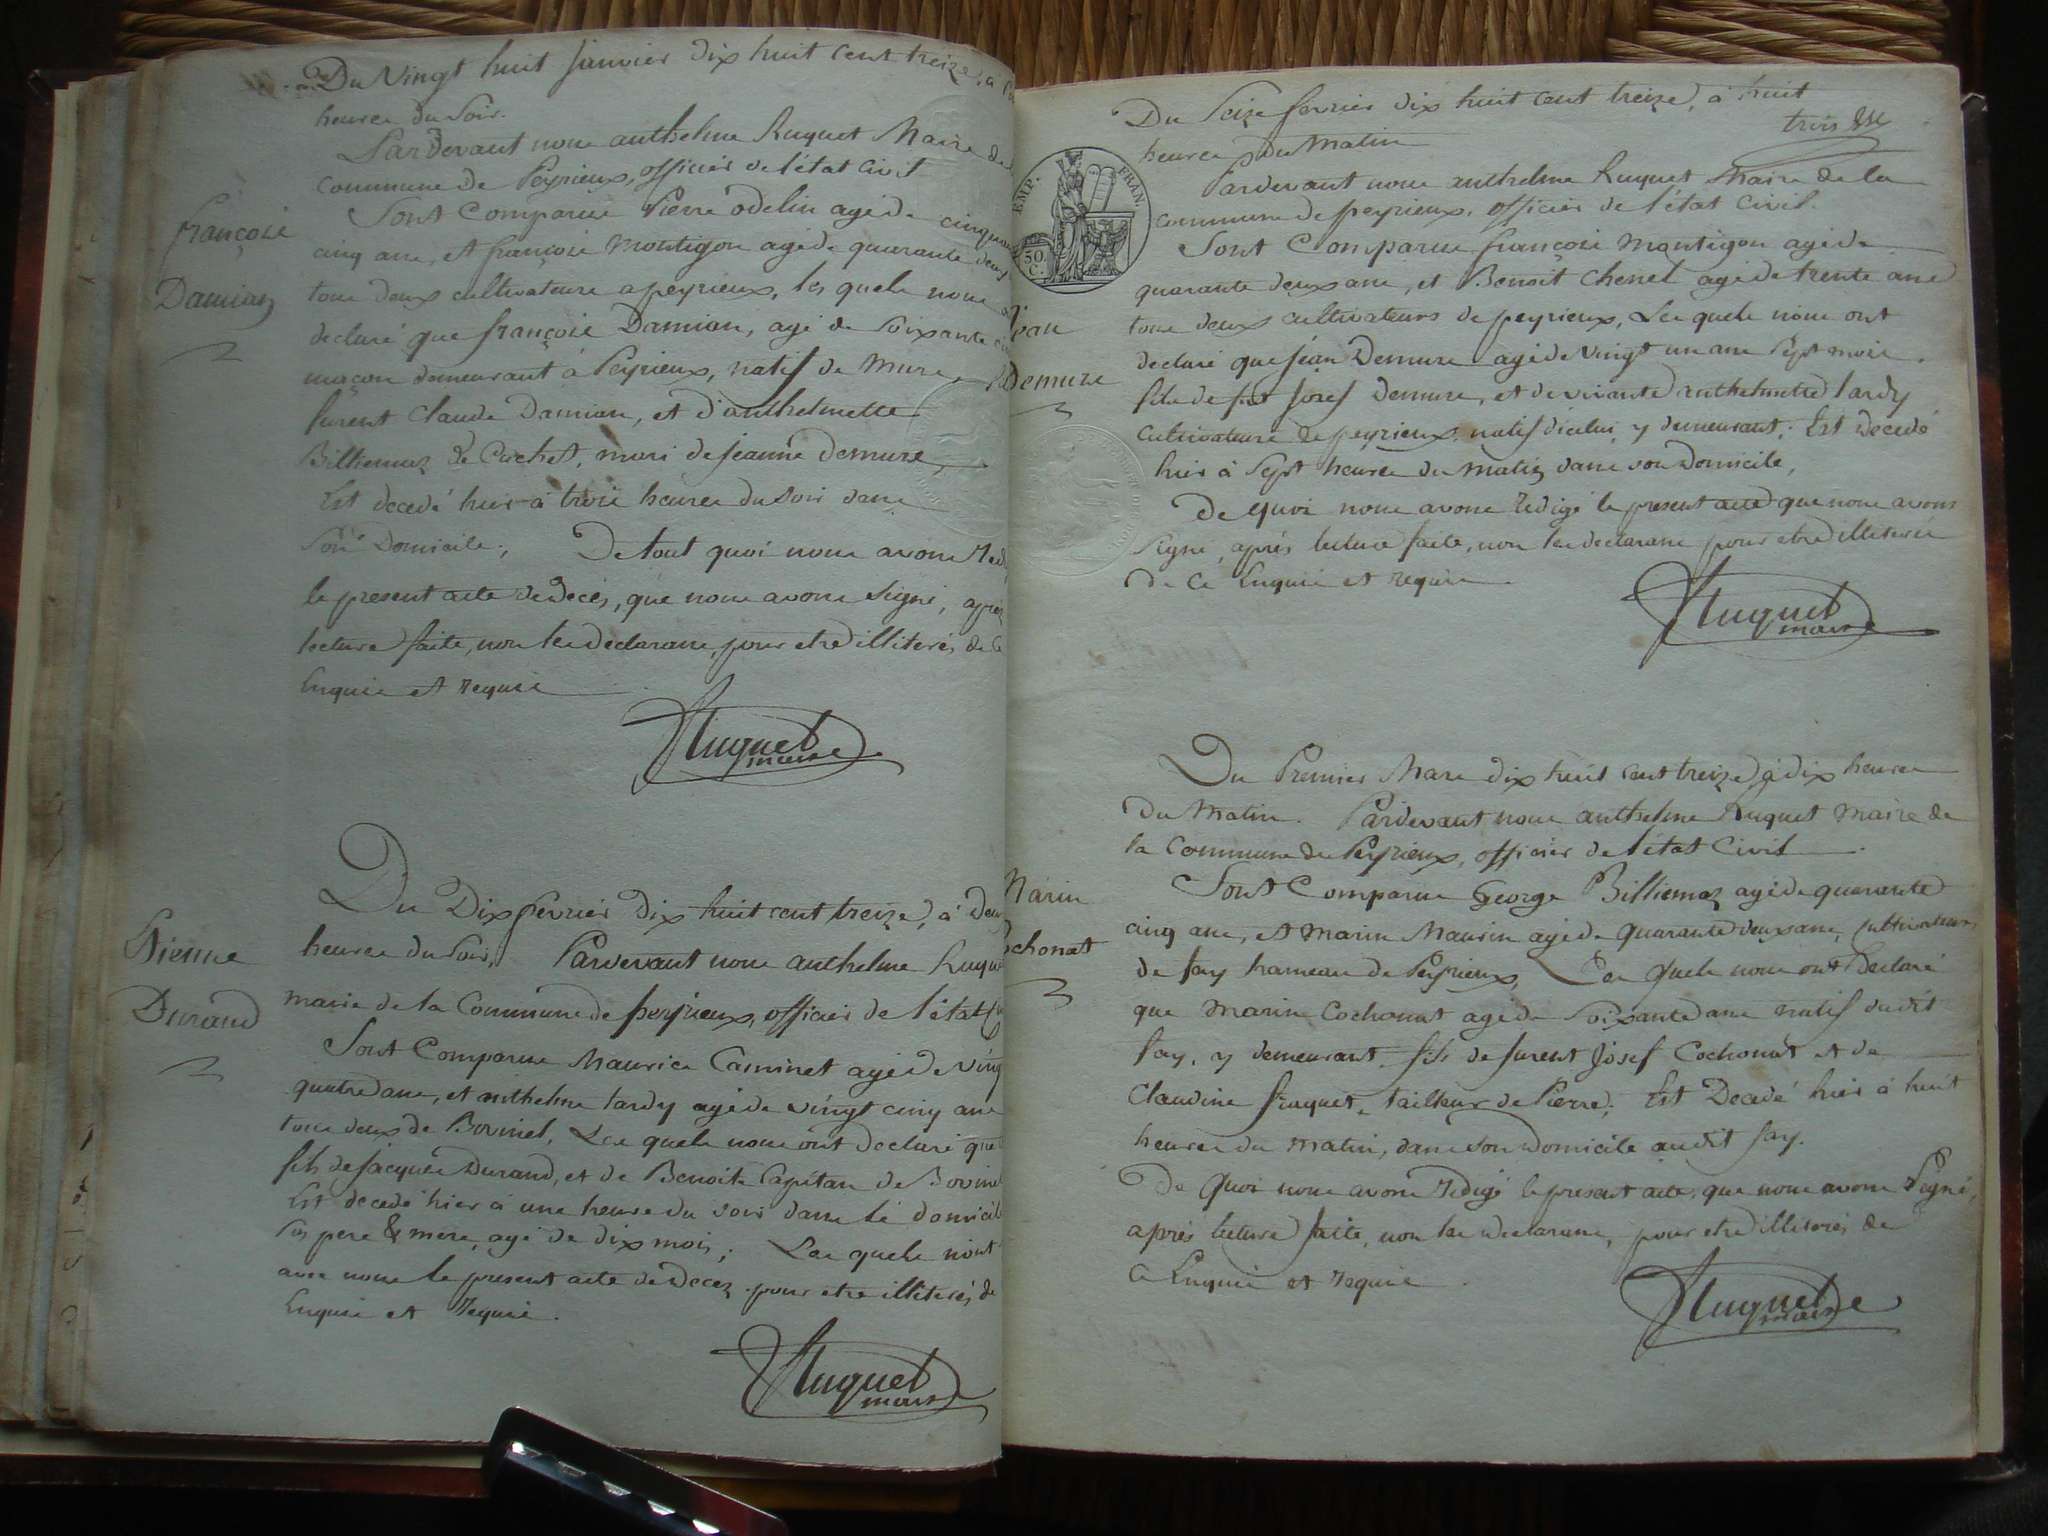 Du Vingt huit janvier dix huit cent treize, a
heures du Soir.
Pardevant nous anthelme Huguet Maire de
Commune de Peyrieux, officier de l'état civil
Sont Comparus Pierre odelin agé de cinquante
cinq ans, et françois montigon agé de quarante deux
tous deux cultivateurs a peyrieux, les quels nous
declaré que françois Damian, agé de soixante
maçon demeurant à Peyrieux, natif de Mure
furent Claude Damian, et d'anthelmette
Billiemaz de Cuchet, mari de jeanne demure,
Est decedé hier à trois heures du soir dans
Son Domicile; De tout quoi nous avons
le present acte de deces, que nous avons signé, après
lecture faite, non les declarans, pour etre illiterés de
Enquis et requis
Huguet
maire
françois
Damian
Du Dix fevrier dix huit cent treize, à deux
heures du soir, Pardevant nous anthelme Huguet
marie de la Commune de peyrieux, officier de l'état
Sont Comparus Maurice Caminet agé de vingt
quatre ans, et anthelme tardy agé de vingt cinq ans
tous deux de Bovinel, Les quels nous ont declaré que
fils de Jacques Durand, et de Benoite Capitan de Bovinel
Est decedé hier à une heure du soir dans le domicile
ses pere & mere, agé de dix mois; Les quels n'ont
avec nous le present acte de Decez pour etre illiterés de
Enquis et Requis.
Huguet
maire
Etienne
Durand
Du Seize fevrier dix huit cent treize, à huit
trois
heures du Matin
Pardevant nous anthelme Huguet Maire de la
commune de peyrieux, officier de l'état Civil.
Sont Comparus françois montigon agé de
quarante deux ans, et Benoit Chenet agé de trente ans
tous deux cultivateurs de peyrieux, Les quels nous ont
declaré que jéan Demure agé de vingt un ans sept mois
fils de feu Josef Demure, et de vivante anthelmette tardy
Cultivateurs de peyrieux, natif d'icelui y demeurant; Est decedé
hier à Sept heures du matin dans son Domicile,
De quoi nous avons redigé le present acte que nous avons
signé, après lecture faite, non les declarans pour etre illiterés
de ce Enquis et requis
Huguet
maire
EMP. FRAN.
50.
C.
Jean
Demure
Du Premier Mars dix huit cent treize à dix heures
du Matin. Pardevant nous anthelme Huguet maire de
la Commune de Peyrieux, officier de l'état Civil
Sont Comparus George Billiemaz agé de quarante
cinq ans, et marin Maurin agé de quarante deux ans, Cultivateurs
de fay hameau de Peyrieux, Les Quels nous ont declaré
que marin Cochonat agé de soixante ans natif dudit
fay, y demeurant fils de furent Josef Cochonat et de
Claudine fruquet, tailleur de Pierre; Est Decedé hier à huit
heures du matin, dans son Domicile audit fay.
De Quoi nous avons redigé le present acte, que nous avons Signé,
après lecture faite, non les declarans, pour etre illiterés de
Ce Enquis et requis
Huguet
maire
Marin
Cochonat